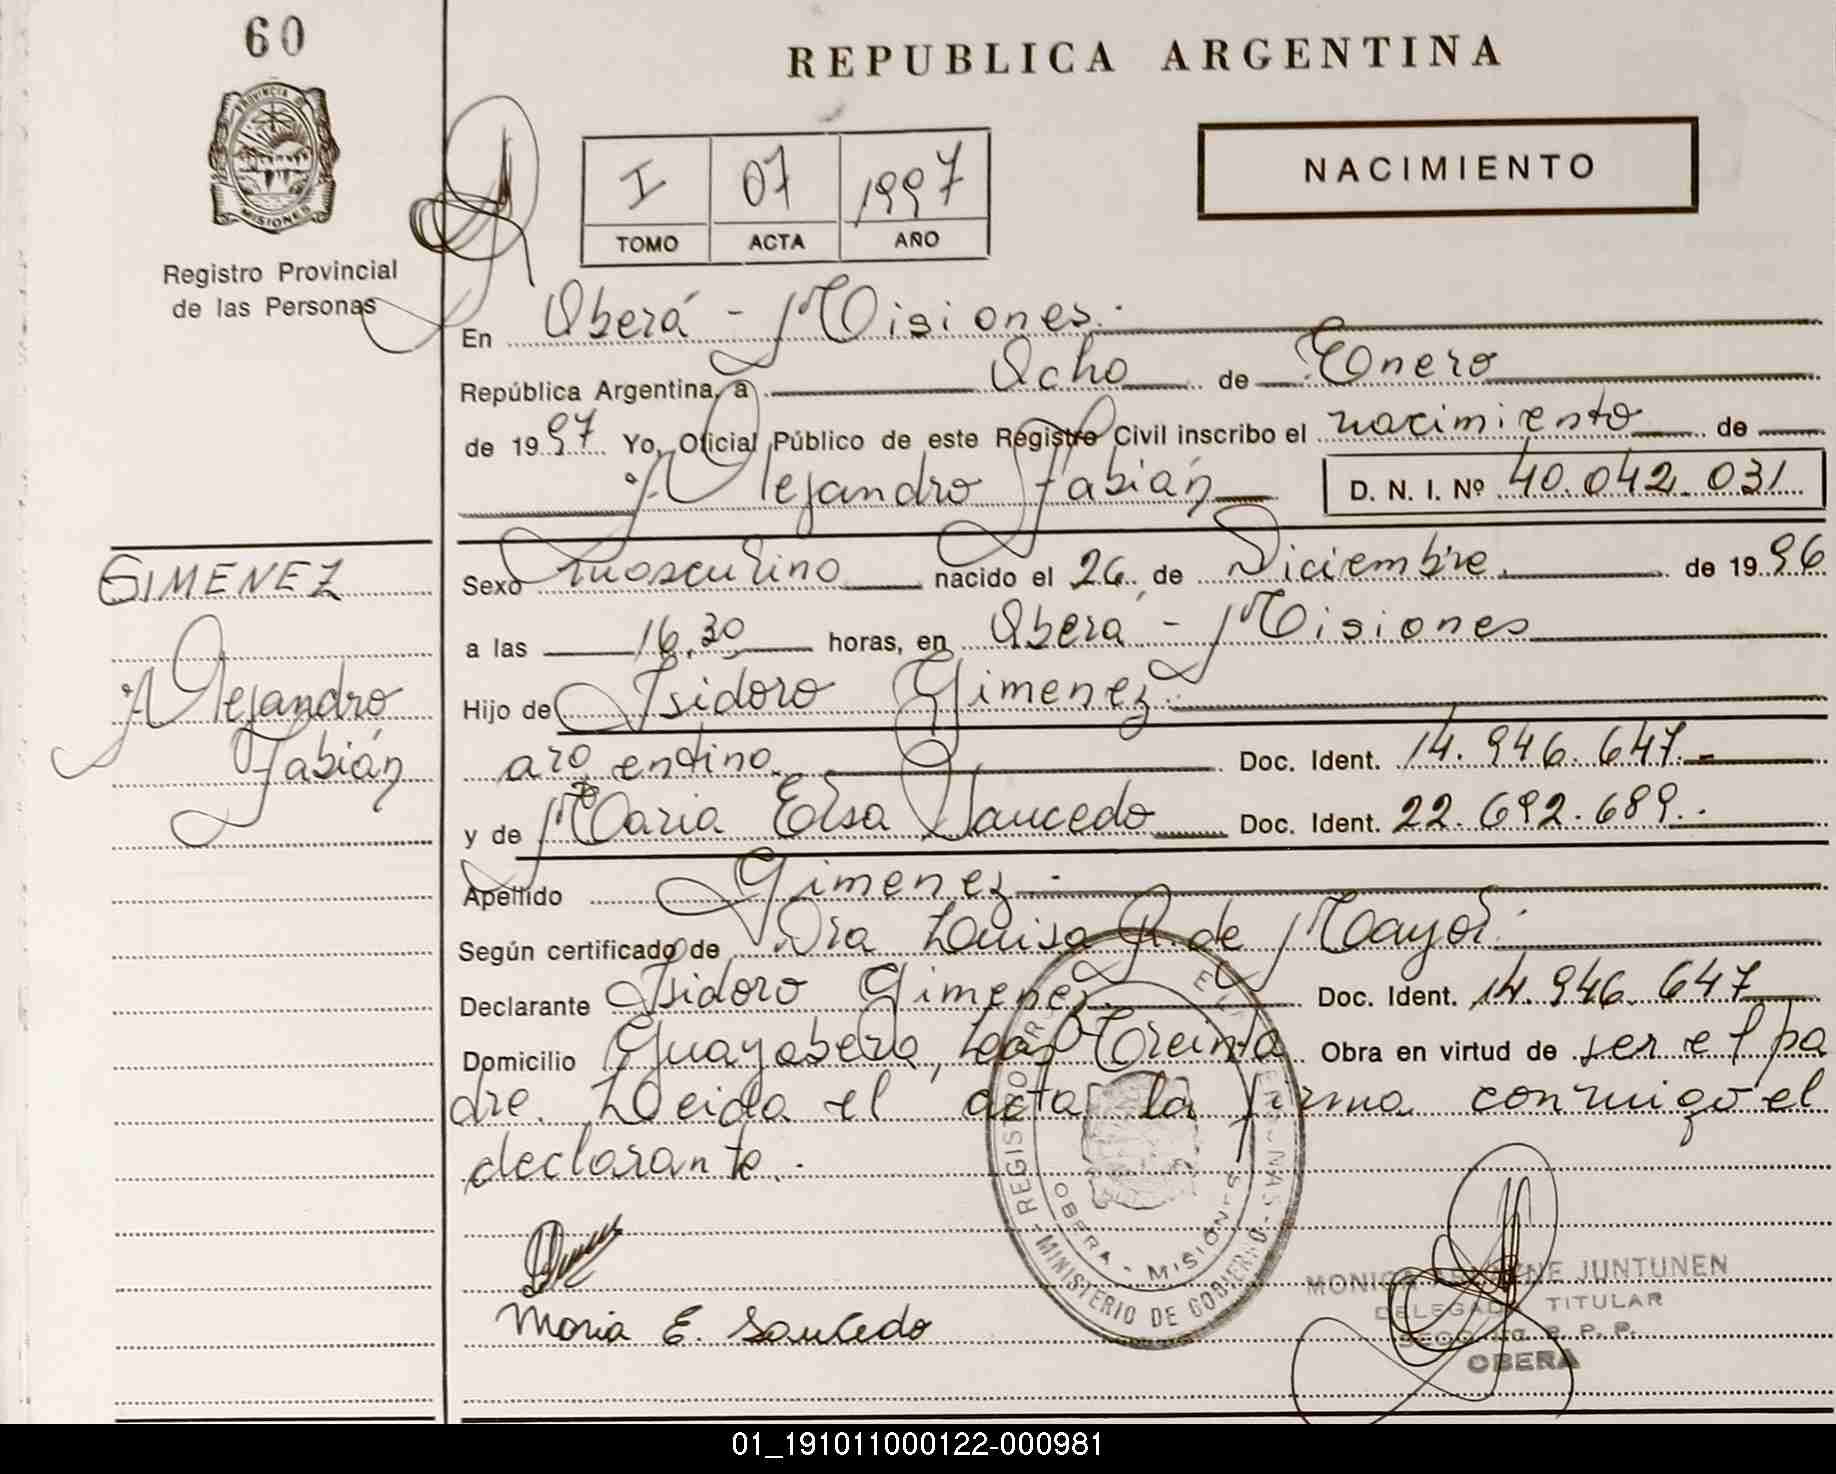 60
REPUBLICA ARGENTINA
PROVINCIA DE
MISIONES
Registro Provincial
de las Personas
I 07 1997
TOMO ACTA AÑO
NACIMIENTO
En Oberá - Misiones.
República Argentina, a Ocho de Enero
de 1997 Yo, Oficial Público de este Registro Civil inscribo el nacimiento de
Alejandro Fabián D. N. I. Nº 40.042.031
GIMENEZ
Alejandro
Fabián
Sexo masculino nacido el 26 de Diciembre de 1996
a las 16,30 horas, en Oberá - Misiones
Hijo de Isidoro Gimenez.
argentino. Doc. Ident. 14.946.647.-
y de Maria Elsa Saucedo Doc. Ident. 22.692.689.
Apellido Gimenez
Según certificado de Dra Luisa R. de Mayol.
Declarante Isidoro Gimenez Doc. Ident. 14.946.647
Domicilio Guayabera, Los Treinta Obra en virtud de ser el pa
dre. Leida el acta la firma conmigo el
declarante.
Maria E. Saucedo
MINISTERIO DE GOBIERNO
OBERA - MISIONES
JUNTUNEN
DELEGADA TITULAR
R. P. P.
OBERA
01_191011000122-000981